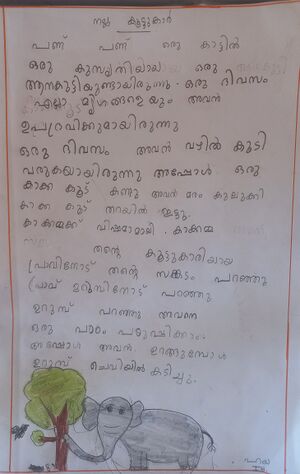 നല്ല കൂട്ടുകാർ
പണ്ട് പണ്ട് ഒരു കാട്ടിൽ
ഒരു കുസൃതിയായ ഒരു
ആനകുട്ടിയുണ്ടായിരുന്നു. ഒരു ദിവസം
എല്ലാ മൃഗങ്ങളെയും അവൻ
ഉപദ്രവിക്കുമായിരുന്നു
ഒരു ദിവസം അവൻ വഴിൽ കൂടി
വരുകയായിരുന്നു അപ്പോൾ ഒരു
കാക്ക കൂട് കണ്ടു അവൻ മരം കുലുക്കി
കാക്ക കൂട് തറയിൽ ഇട്ടു.
കാക്കമ്മക്ക് വിഷമാമാലി. കാക്കമ്മ
തന്റെ കൂട്ടുകാരിയായ
പ്രാവിനോട് തന്റെ സങ്കടം പറഞ്ഞു
പ്രാവ് ഉറുമ്പിനോട് പറഞ്ഞു
ഉറുമ്പ് പറഞ്ഞു അവനെ
ഒരു പാഠം പഠിപ്പിക്കാം.
അപ്പോൾ അവൻ ഉറങ്ങുമ്പോൾ
ഉറുമ്പ് ചെവിയിൽ കടിച്ചു.